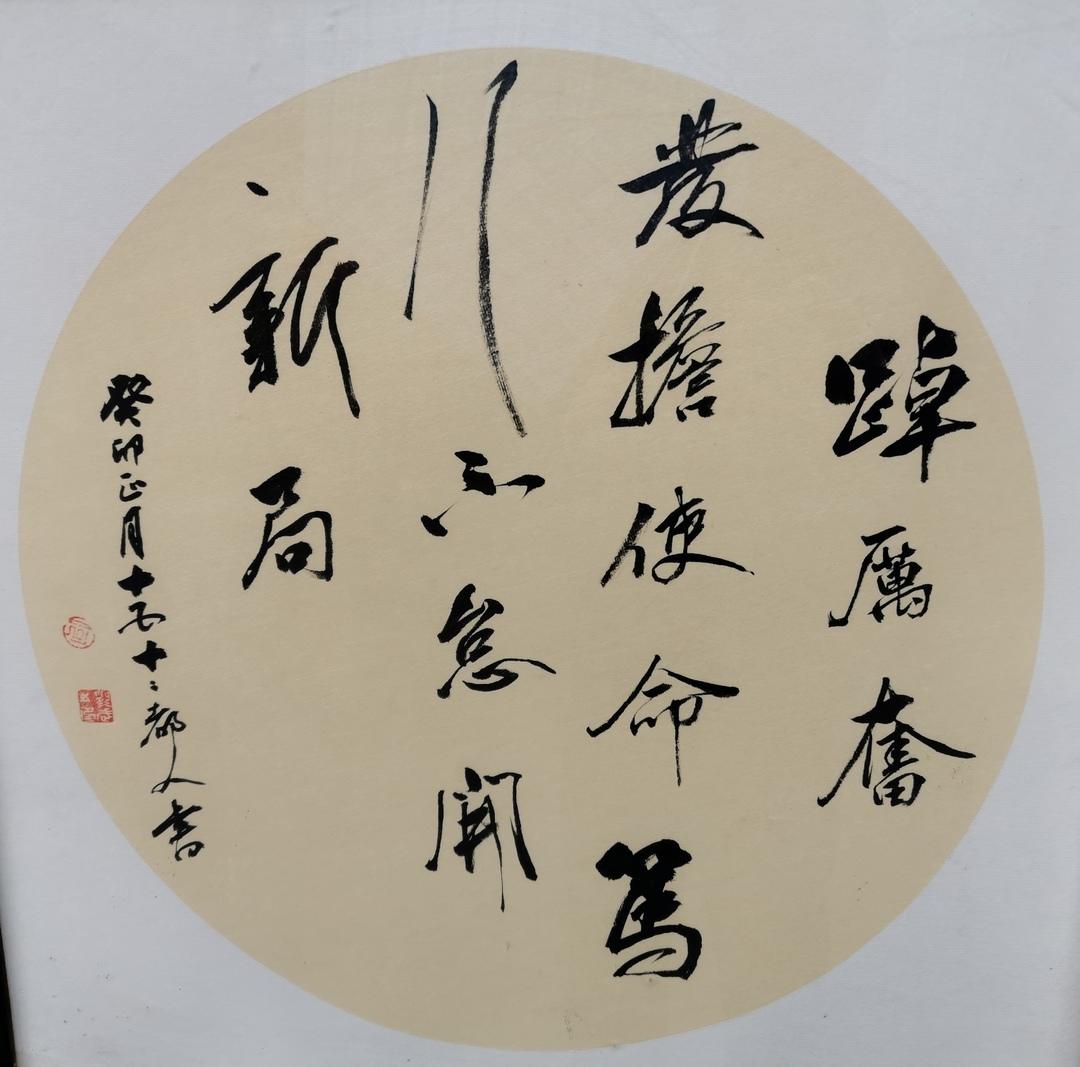 踔厲奮
發擔使命篤
行不怠開
新局
癸卯正月十五十二都人書